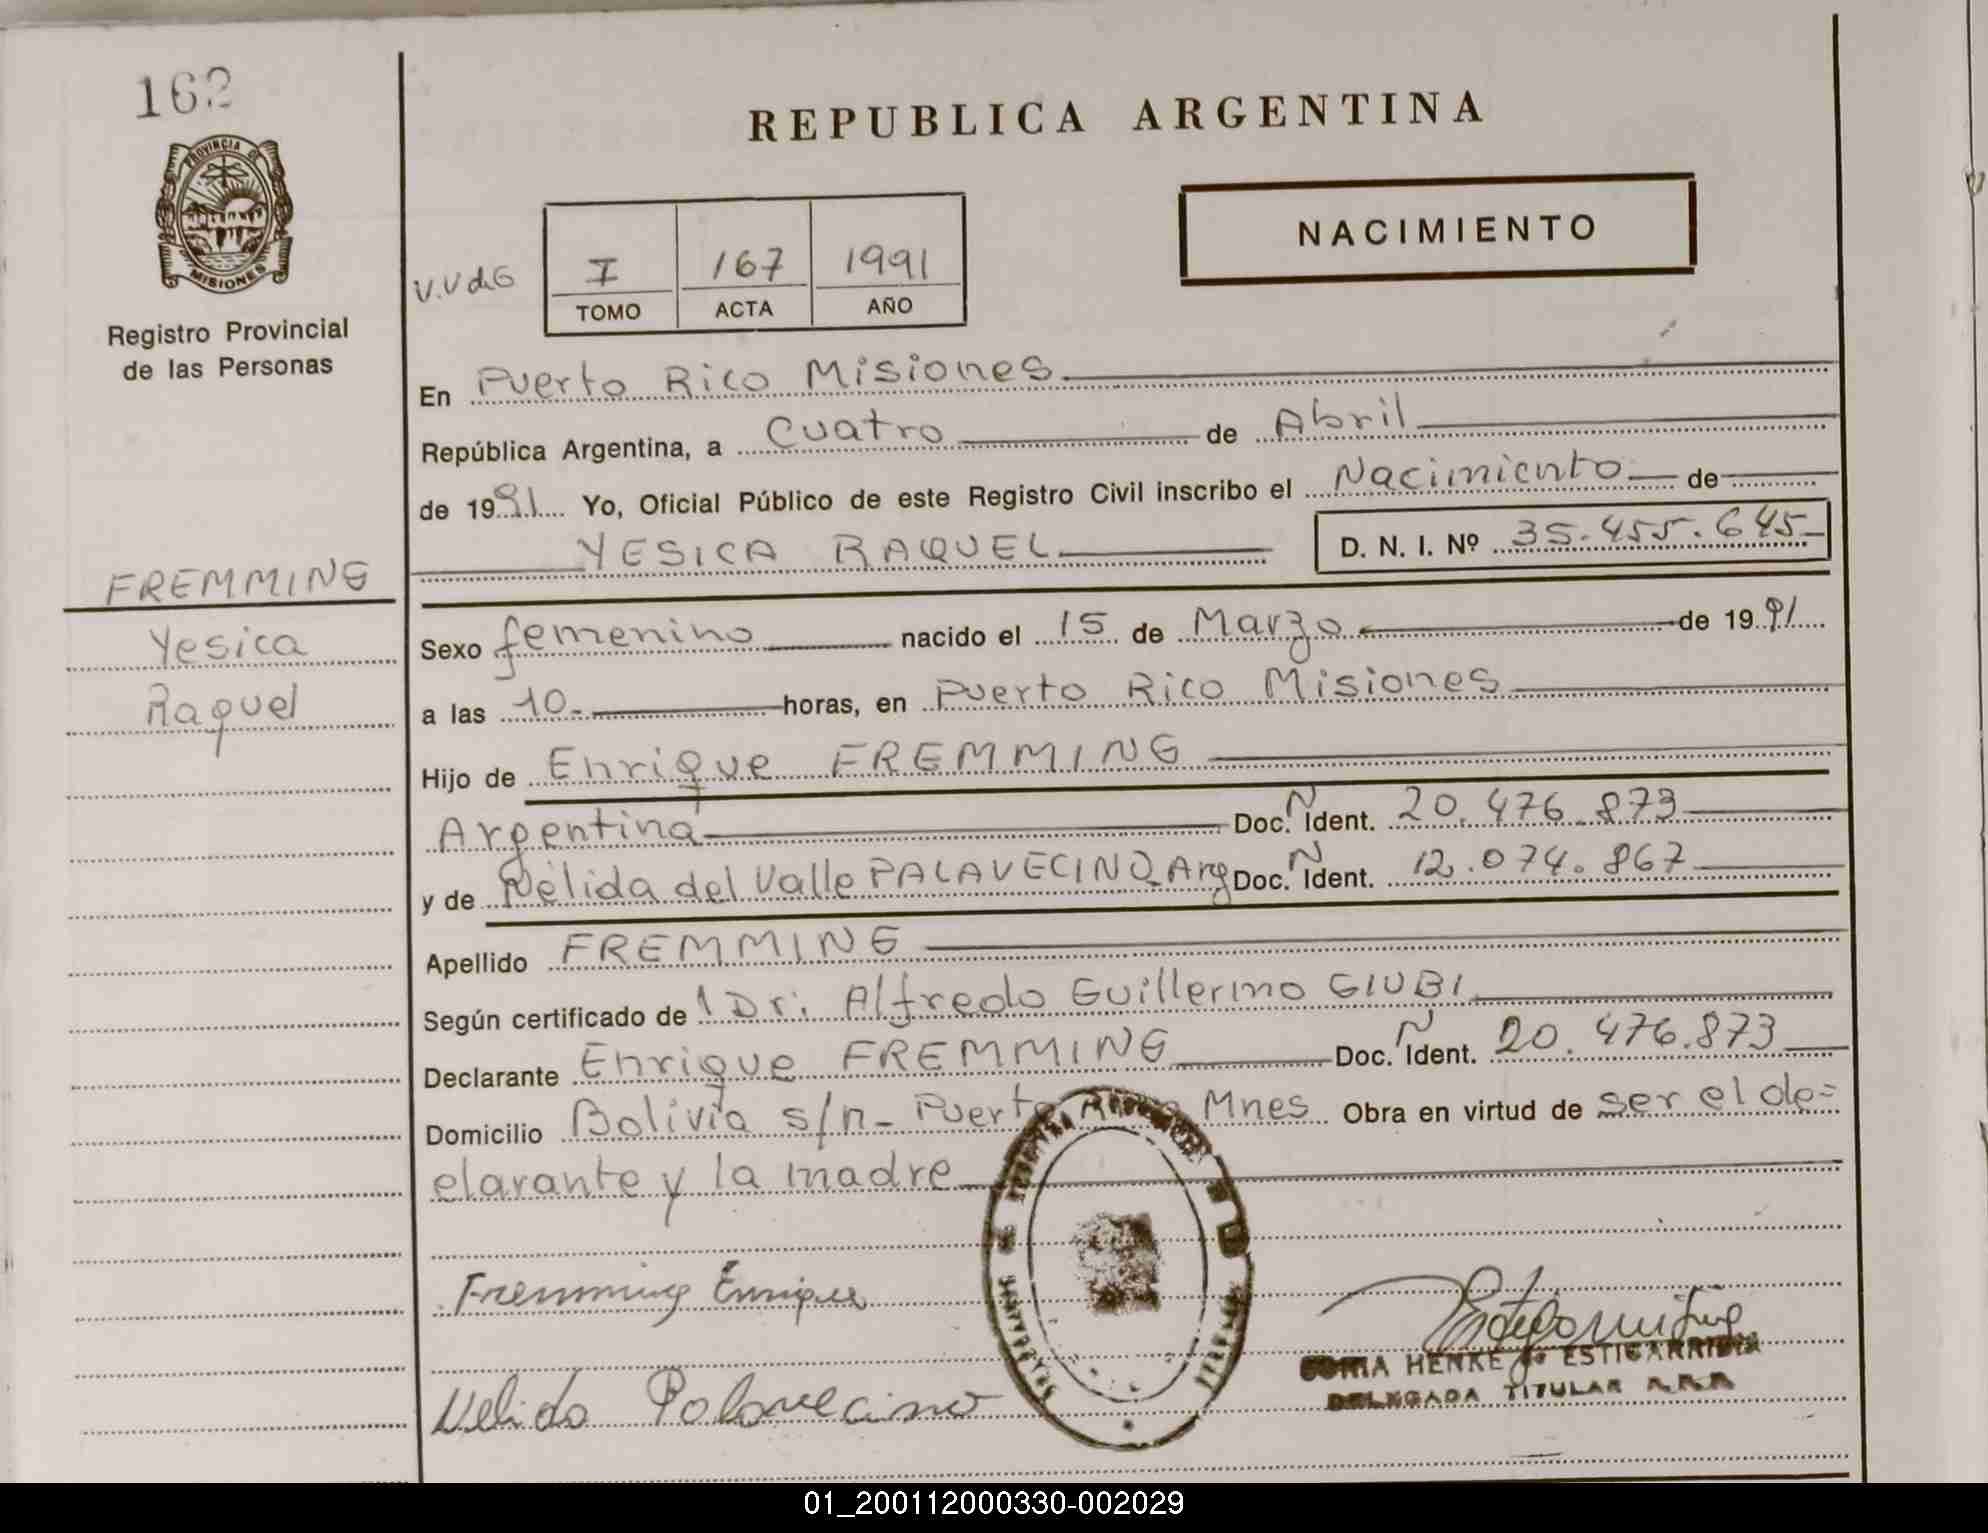 162
PROVINCIA DE
MISIONES
Registro Provincial
de las Personas
FREMMING
Yesica
Raquel
REPUBLICA ARGENTINA
NACIMIENTO
V.V de G
I 167 1991
TOMO ACTA AÑO
En Puerto Rico Misiones
República Argentina, a Cuatro de Abril
de 1991 Yo, Oficial Público de este Registro Civil inscribo el Nacimiento de
YESICA RAQUEL D. N. I. Nº 35.455.645
Sexo femenino nacido el 15 de Marzo de 1991
a las 10 horas, en Puerto Rico Misiones
Hijo de Enrique FREMMING
Argentina Doc. Ñ Ident. 20.476.873
y de Nélida del Valle PALAVECINO Arg Doc. Ñ Ident. 12.074.867
Apellido FREMMING
Según certificado de l Dr. Alfredo Guillermo GIUBI
Declarante Enrique FREMMING Doc. Ñ Ident. 20.476.873
Domicilio Bolivia s/n - Puerto Mnes Obra en virtud de ser el de=
clarante y la madre
Fremming Enrique
Nelida Palavecino
HENKE de ESTIGARRIBIA
DELEGADA TITULAR
01_200112000330-002029